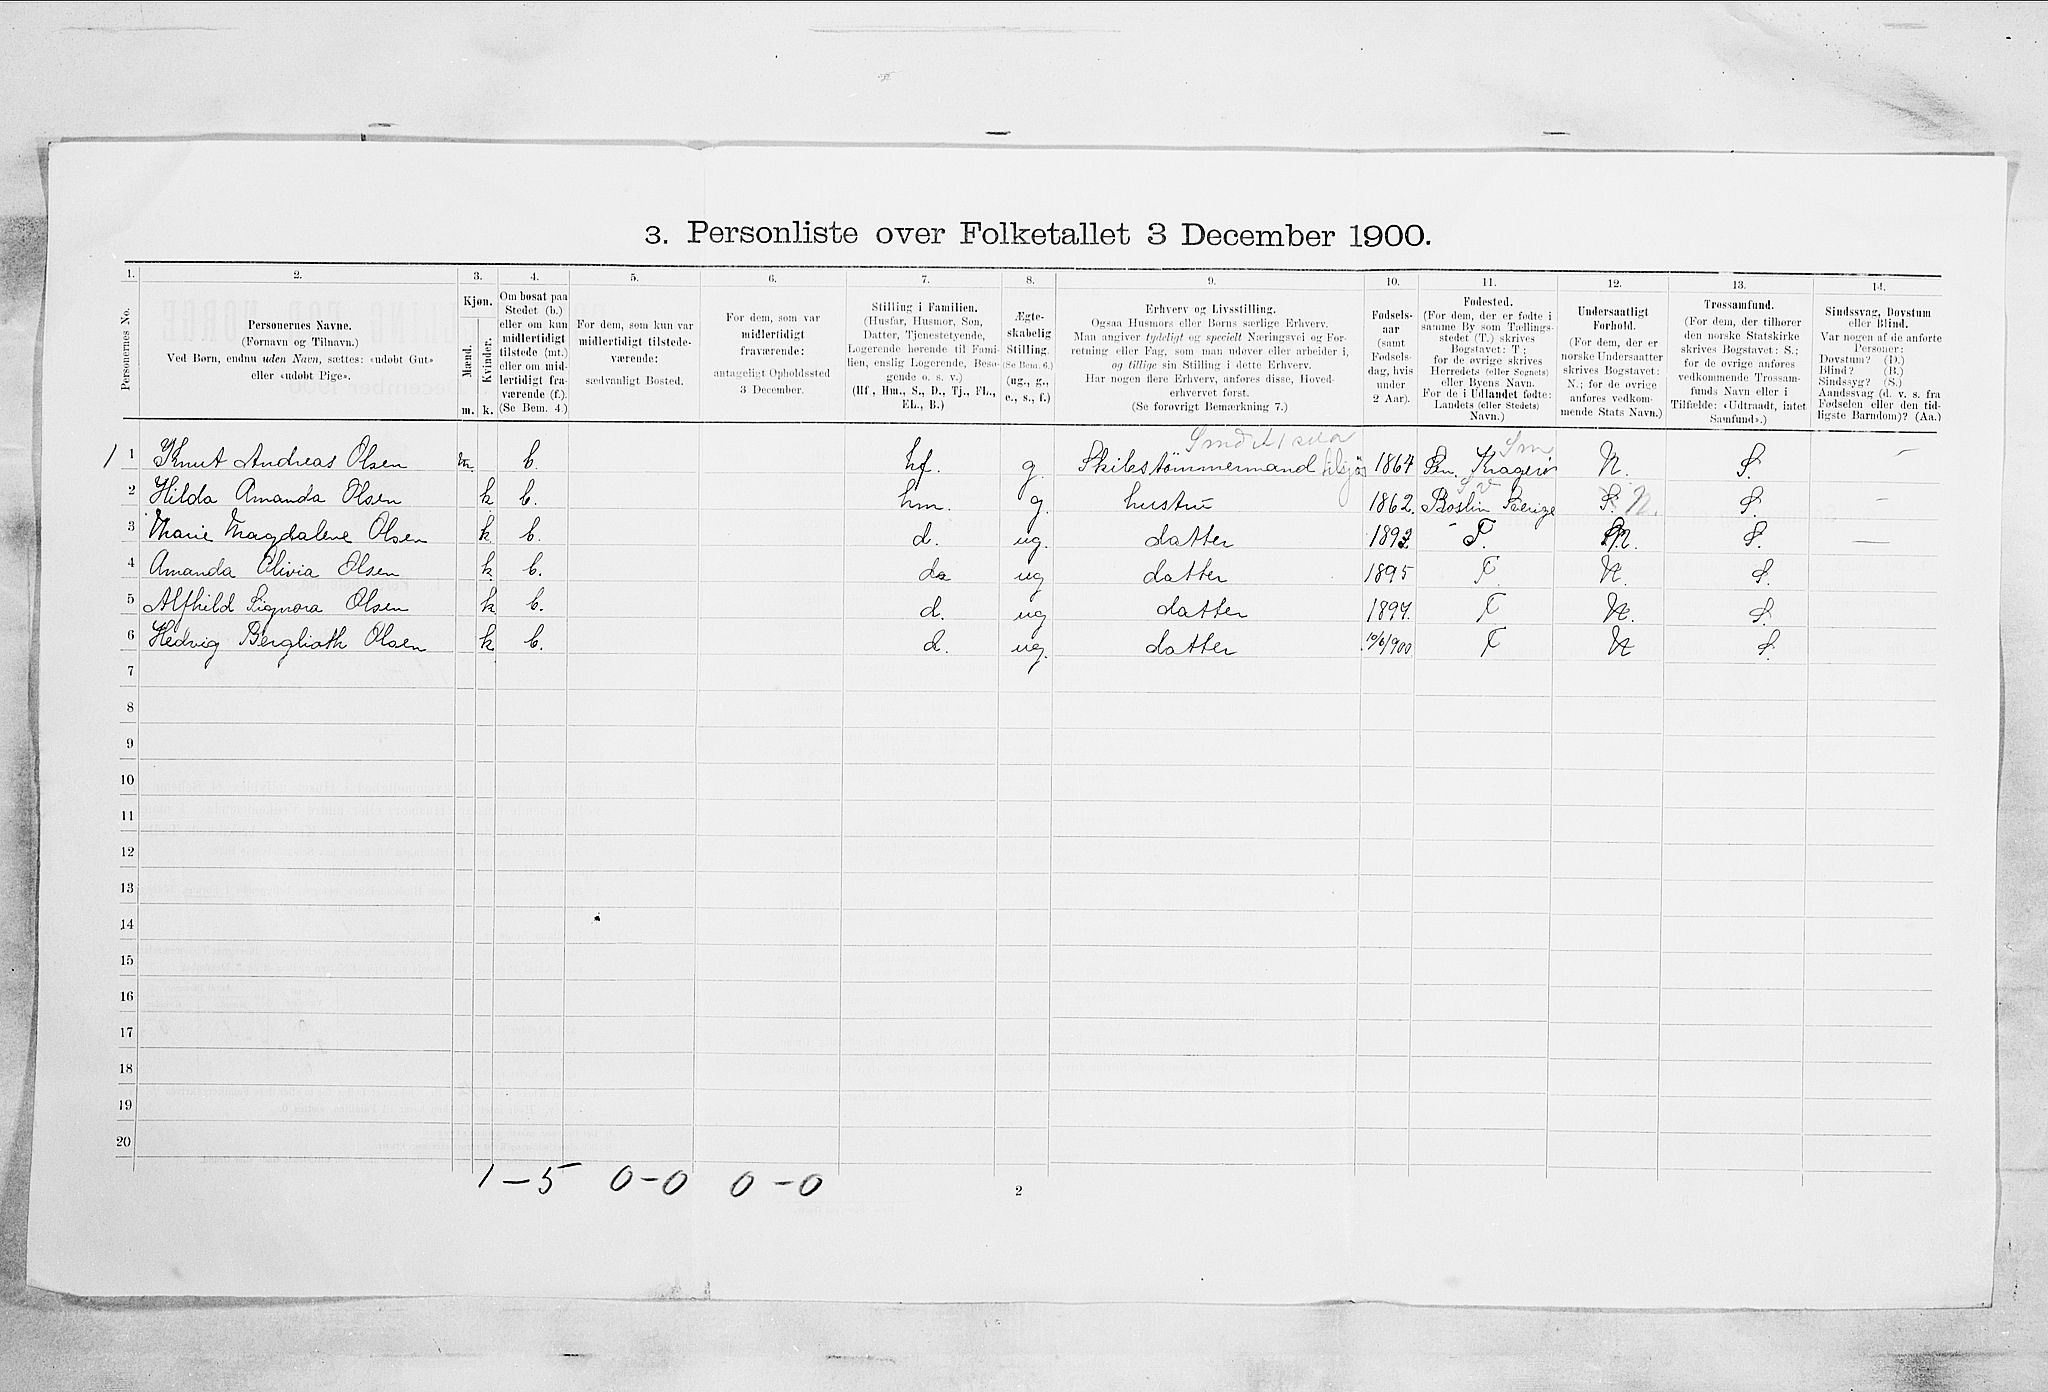 3. Personliste over Folketallet 3 December 1900.
1. 2. 3. 4. 5. 6. 7. 8. 9. 10. 11. 12. 13. 14.
Personernes No.
Personernes Navne.
(Fornavn og Tilnavn.)
Ved Børn, endnu uden Navn, sættes: «udøbt Gut»
eller «udøbt Pige».
Kjøn.
Mænd.
Kvinder.
m. k.
Om bosat paa
Stedet (b.)
eller om kun
midlertidigt
tilstede (mt.)
eller om mid-
lertidigt fra-
værende (f.).
(Se Bem. 4.)
For dem, som kun var
midlertidigt tilstede-
værende:
sædvanligt Bosted.
For dem, som var
midlertidigt
fraværende:
antageligt Opholdssted
3 December.
Stilling i Familien.
(Husfar, Husmor, Søn,
Datter, Tjenestetyende,
Logerende hørende til Fami-
lien, enslig Logerende, Besø-
gende o. s. v.)
(Hf., Hm., S., D., Tj., FL.,
EL., B.)
Ægte-
skabelig
Stilling.
(Se Bem. 6.)
(ug., g.,
e., s., f.)
Erhverv og Livsstilling.
Ogsaa Husmors eller Børns særlige Erhverv.
Man angiver tydeligt og specielt Næringsvei og For-
retning eller Fag, som man udøver eller arbeider i,
og tillige sin Stilling i dette Erhverv.
Har nogen flere Erhverv, anføres disse, Hoved-
erhvervet først.
(Se forøvrigt Bemærkning 7.)
Fødsels-
aar
(samt
Fødsels-
dag, hvis
under
2 Aar).
Fødested.
(For dem, der er fødte i
samme By som Tællings-
stedet (T.) skrives
Bogstavet: T.;
for de øvrige skrives
Herredets (eller Sognets)
eller Byens Navn.
For de i Udlandet fødte:
Landets (eller Stedets)
Navn.)
Undersaatligt
Forhold.
(For dem, der er
norske Undersaatter
skrives Bogstavet:
N.; for de øvrige
anføres vedkom-
mende Stats Navn.)
Trossamfund.
(For dem, der tilhører
den norske Statskirke
skrives Bogstavet: S.;
for de øvrige anføres
vedkommende Trossam-
funds Navn eller i
Tilfælde: «Udtraadt, intet
Samfund».)
Sindssvag, Døvstum
eller Blind.
Var nogen af de anførte
Personer:
Døvstum? (D.)
Blind? (B.)
Sindssyg? (S.)
Aandssvag (d. v. s. fra
Fødselen eller den tid-
ligste Barndom)? (Aa.)
1 1 Knut Andreas Olsen m. b. hf. g. Skibstömmermand tilsjøs 1864 Kragerø N. S. –
2 Hilda Amanda Olsen k b. hm. g. hustru 1862. Sverige S. N. S. –
3 Marie Magdalene Olsen k b. d. ug. datter T. N. S. —
4 Amanda Olivia Olsen k b. d ug datter 1895 T. N. S.
5 Alfhild Signora Olsen k b. d. ug datter 1897. T N. S.
6 Hedvig Berglioth Olsen k b. d. ug. datter 10/6 1900 T N S.
7
8
9
10
11
12
13
14
15
16
17
18
19
20
1 – 5 0 – 0 0 – 0
2